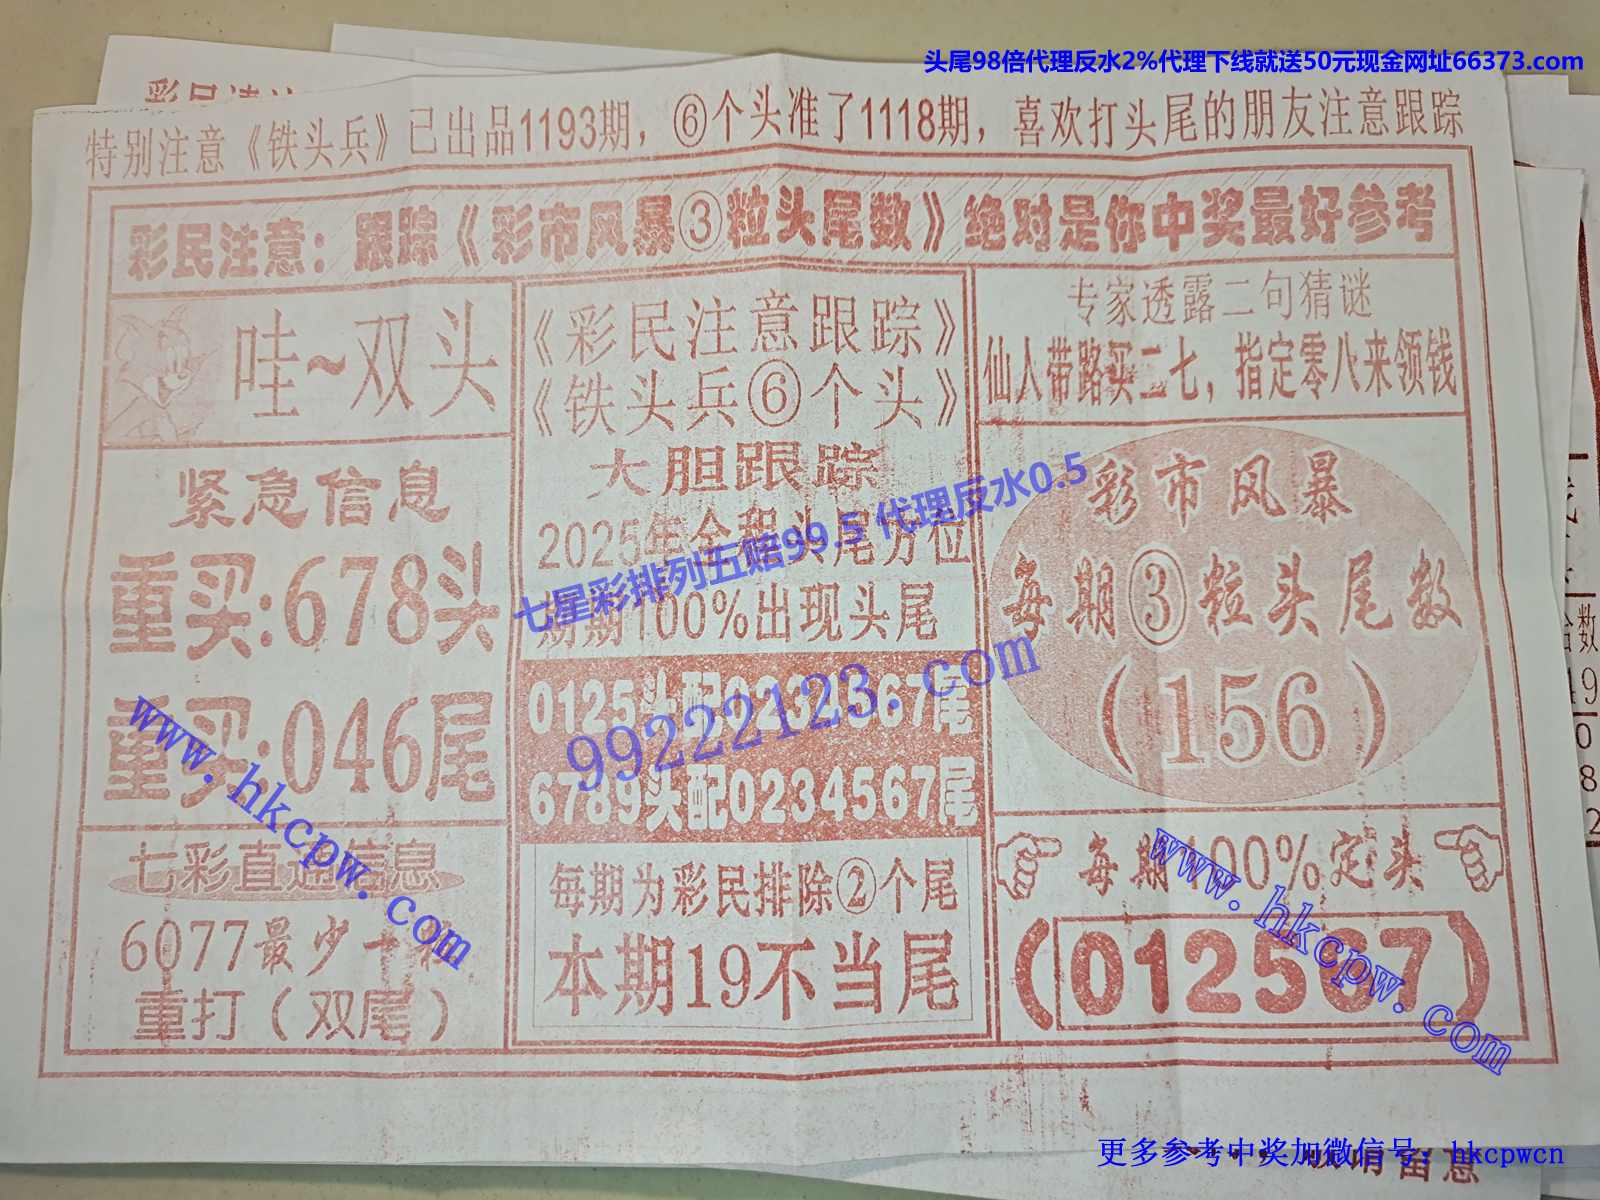 头尾98倍代理反水2%代理下线就送50元现金网址66373.com
特别注意《铁头兵》已出品1193期，⑥个头准了1118期，喜欢打头尾的朋友注意跟踪
彩民注意：跟踪《彩市风暴③粒头尾数》绝对是你中奖最好参考
哇~双头
紧急信息
重买:678头
重买:046尾
七彩直通信息
6077最少一粒
重打（双尾）
《彩民注意跟踪》
《铁头兵⑥个头》
大胆跟踪
2025年全程头尾方位
期期100%出现头尾
0125头配0234567尾
6789头配0234567尾
每期为彩民排除②个尾
本期19不当尾
专家透露二句猜谜
仙人带路买二七，指定零八来领钱
彩市风暴
每期③粒头尾数
（156）
每期100%定头
（012567）
七星彩排列五赔99.5 代理反水0.5
99222123.com
www.hkcpw.com
www.hkcpw.com
更多参考中奖加微信号：hkcpwcn